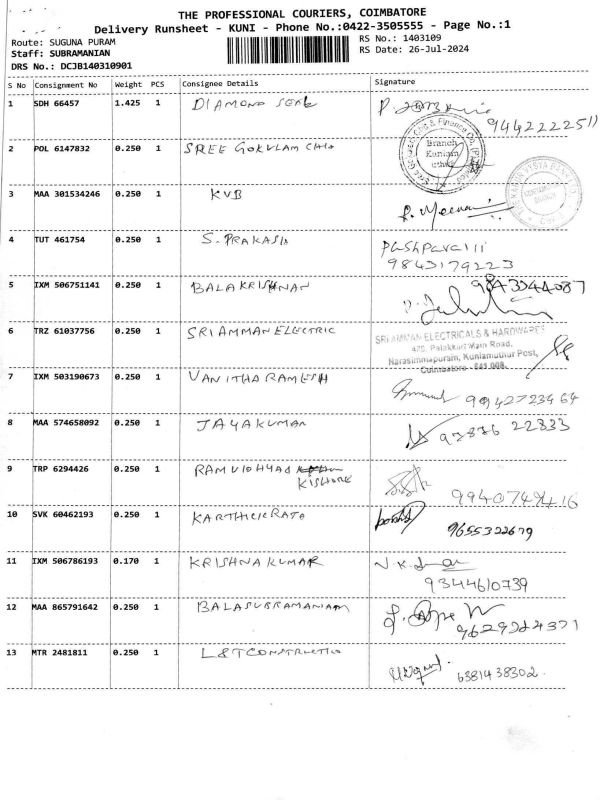 THE PROFESSIONAL COURIERS, COIMBATORE
Delivery Runsheet - KUNI - Phone No.:0422-3505555 - Page No.:1
Route: SUGUNA PURAM
RS No.: 1403109
Staff: SUBRAMANIAN
RS Date: 26-Jul-2024
DRS No.: DCJB140310901
S No Consignment No Weight PCS Consignee Details Signature
1 SDH 66457 1.425 1 DIAMOND SEAL
9442222511
2 POL 6147832 0.250 1 SREE GOKULAM CHIT
Branch
3 MAA 301534246 0.250 1 KVB
R. Meena
4 TUT 461754 0.250 1 S. PRAKASH
Pushpavalli
9843179223
5 IXM 506751141 0.250 1 BALAKRISHNAN
9843344087
6 TRZ 61037756 0.250 1 SRI AMMAN ELECTRIC
SRI AMMAN ELECTRICALS & HARDWARES
Palakkad Main Road,
Narasimmapuram, Kuniamuthur Post,
Coimbatore - 641 008.
7 IXM 503190673 0.250 1 VANITHA RAMESH
9942723464
8 MAA 574658092 0.250 1 JAYAKUMAR
97876 22833
9 TRP 6294426 0.250 1 RAMVIDHYAS
KISHORE
10 SVK 60462193 0.250 1 KARTHICK RAJA
9655322679
11 IXM 506786193 0.170 1 KRISHNA KUMAR
9344610739
12 MAA 865791642 0.250 1 BALASUBRAMANIAM
13 MTR 2481811 0.250 1 L&T CONSTRUCTIO
6381438302.